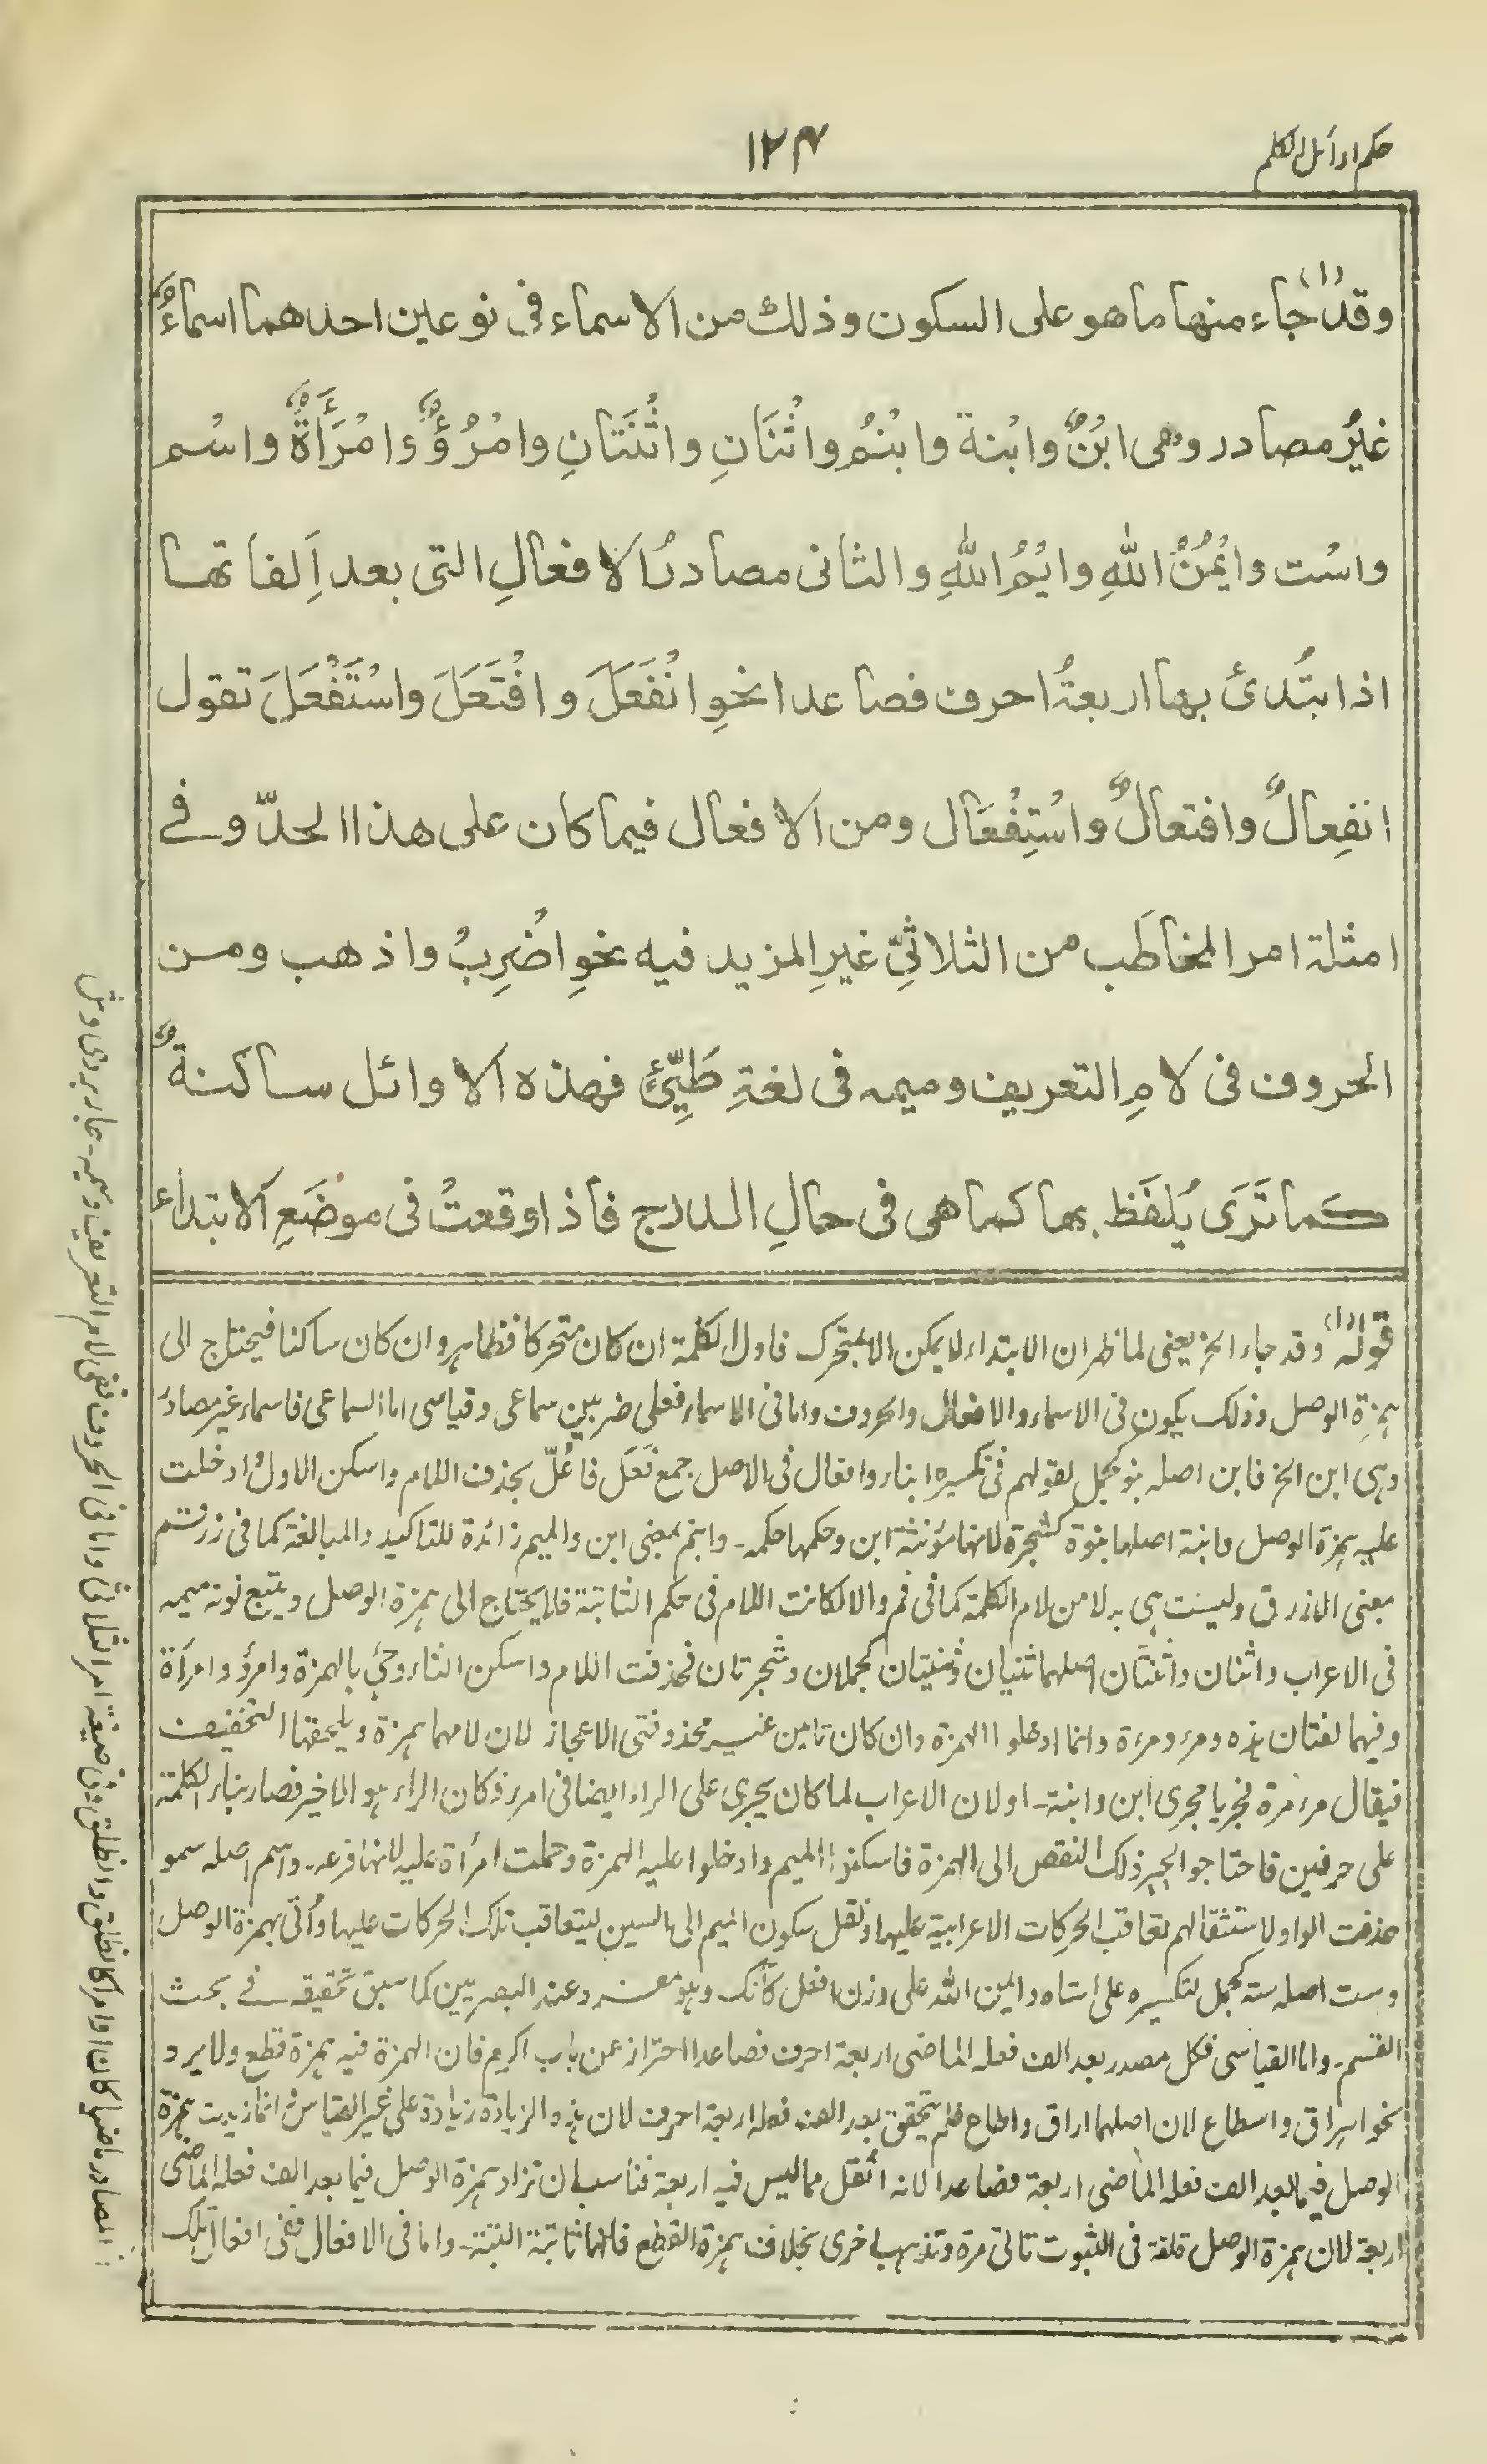 حكم اوائل الكلم
١٢٤
وقدْ(١) جاء منها ما هو على السكون وذلك من الاسماء فى نوعين احدهما اسماءٌ
غيرُ مصادر وهى ابْنٌ وابْنة وابْنُمٌ واثْنَانِ واثْنَتَانِ وامْرُؤٌ وامْرَأَةٌ واسْم
واسْت وايْمُنُ اللّٰهِ وايْمُ اللّٰهِ والثانى مصادرُ الافعالِ التى بعد اَلِفاتها
اذا ابتُدئ بها اربعةُ احرف فصاعدا نحوِ انْفَعَلَ وافْتَعَلَ واسْتَفْعَلَ تقول
انفِعالٌ وافتعالٌ واسْتِفْعَال ومن الافعال فيما كان على هذا الحدّ وفے
امثلة امر المخاطَب من الثلاثىِّ غيرِ المزيد فيه نحوِ اضْرِبْ واذهب ومن
الحروف فى لامِ التعريف وميمه فى لغةِ طَيِّئٍ فهذه الاوائل ساكنةٌ
كما تَرَى يُلفَظ بها كما هى فى حالِ الدرج فاذا وقعتْ فى موضَعِ الابتداء
قوله(١) وقد جاء الخ يعنى لما ظهر ان الابتداء لا يمكن الا بمتحرك فاول الكلمة ان كان متحركا فظاهر وان كان ساكنا فيحتاج الى
همزة الوصل وذلك يكون فى الاسماء والافعال والحروف واما فى الاسماء فعلى ضربين سماعى وقياسى اما السماعى فاسماء غير مصادر
وهى ابن الخ فابن اصله بنو كجمل لقولهم فى تكسيره ابناء وافعال فى الاصل جمع فَعَل فاُعِلّ بحذف اللام واسكن الاول ادخلت
عليه همزة الوصل وابنة اصلها بنوة كشجرة لانها مؤنثة ابن وحكمها حكمه۔ وابنم بمعنى ابن والميم زائدة للتاكيد والمبالغة كما فى زرقم
بمعنى الازرق وليست هى بدلا من لام الكلمة كما فى فم والا لكانت اللام فى حكم الثابتة فلا يحتاج الى همزة الوصل ويتبع نونه ميمه
فى الاعراب واثنان واثنتان اصلهما ثنيان وثنيتان كجملان وشجرتان فحذفت اللام واسكن الثاء وجئ بالهمزة وامرؤ وامرأة
وفيهما لغتان هذه ومرء ومرءة وانما ادخلوا الهمزة وان كان تامين غير محذوفتى الاعجاز لان لامهما همزة ويلحقها التخفيف
فيقال مر ومرة فجريا مجرى ابن وابنة۔ او لان الاعراب لما كان يجرى على الراء ايضا فى امرء فكان الراء هو الاخير فصار بناء الكلمة
على حرفين فاحتاجوا لجبر ذلك النقص الى الهمزة فاسكنوا الميم وادخلوا عليه الهمزة وحملت امرأة عليه لانها فرعه۔ واسم اصله سمو
حذفت الواو لاستثقالهم تعاقب الحركات الاعرابية عليها ونقل سكون الميم الى السين ليتعاقب تلك الحركات عليها واُتى بهمزة الوصل
وست اصله سته كجمل لتكسيره على استاه وايمن الله على وزن افعل كآنك وهو مفرد عند البصريين كما سبق تحقيقه فے بحث
القسم۔ واما القياسى فكل مصدر بعد الف فعله الماضى اربعة احرف فصاعدا احتراز عن باب اكرم فان الهمزة فيه همزة قطع ولا يرد
نحو اہراق واسطاع لان اصلهما اراق واطاع فلم يتحقق بعد الف فعله اربعة احرف لان هذه الزيادة زيادة على غير القياس وانما زيدت همزة
الوصل فيما بعد الف فعله الماضى اربعة فصاعدا لانه اثقل مما ليس فيه اربعة فناسب ان تزاد همزة الوصل فيما بعد الف فعله الماضى
اربعة لان همزة الوصل قلقة فى الثبوت تاتى مرة وتذهب اخرى بخلاف همزة القطع فانها ثابتة البتة۔ واما فى الافعال ففى افعال تلك
المصادر ماضيا كان او امرا كانطلق وانطلق وفى صيغة امر الثلاثى واما فى الحروف ففى لام التعريف وميمه۔ جاربردى وش